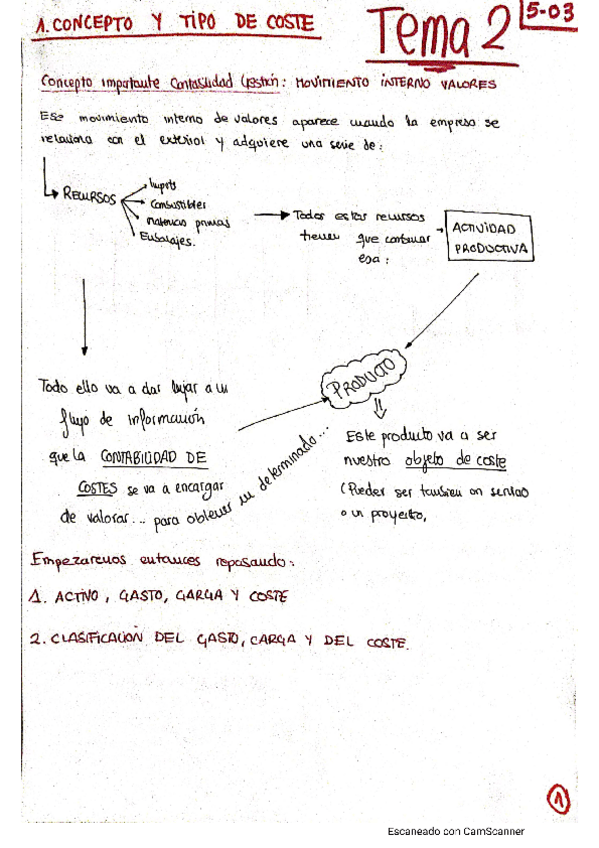 1. CONCEPTO Y TIPO DE COSTE
Tema 2
5-03
Concepto importante Contabilidad Gestión: MOVIMIENTO INTERNO VALORES
Ese movimiento interno de valores aparece cuando la empresa se
relaciona con el exterior y adquiere una serie de:
RECURSOS
Inputs
Combustibles
Materias primas
Embalajes.
Todos estos recursos
tienen que combinar
esa:
ACTIVIDAD
PRODUCTIVA
PRODUCTO
Todo ello va a dar lugar a un
flujo de información
que la CONTABILIDAD DE
COSTES se va a encargar
de valorar... para obtener un determinado...
Este producto va a ser
nuestro objeto de coste
(Pueden ser tambien un servicio
o un proyecto,
Empezaremos entonces repasando:
1. ACTIVO, GASTO, CARGA Y COSTE
2. CLASIFICACIÓN DEL GASTO, CARGA Y DEL COSTE.
1
Escaneado con CamScanner